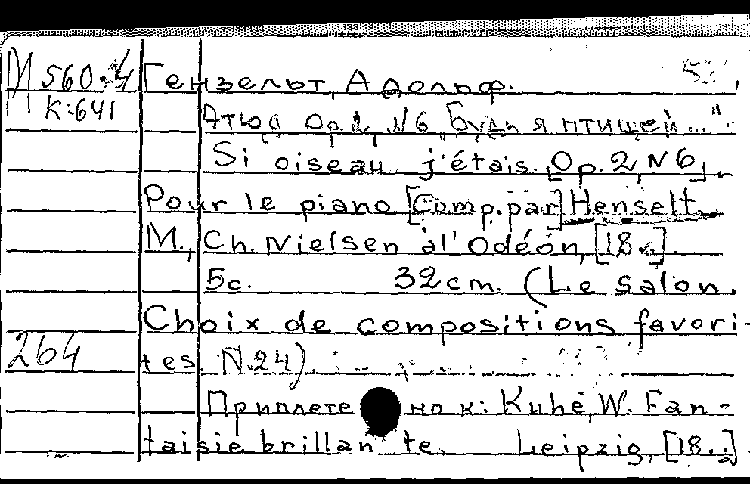 И 560.4 Гензельт, Адольф.
К:641 Этюд Op.2, N6 „Будь я птицей..."
Si oiseau j'étais. Op.2, N6.
Pour le piano [Comp.par] Henselt
M., Ch. Nielsen à l'Odéon, [18..]
5c. 32cm. (Le Salon.
Choix de compositions favori-
264 tes. N.24).
Приплетено к: Kuhe, W. Fan-
taisie brillante. Leipzig, [18..]